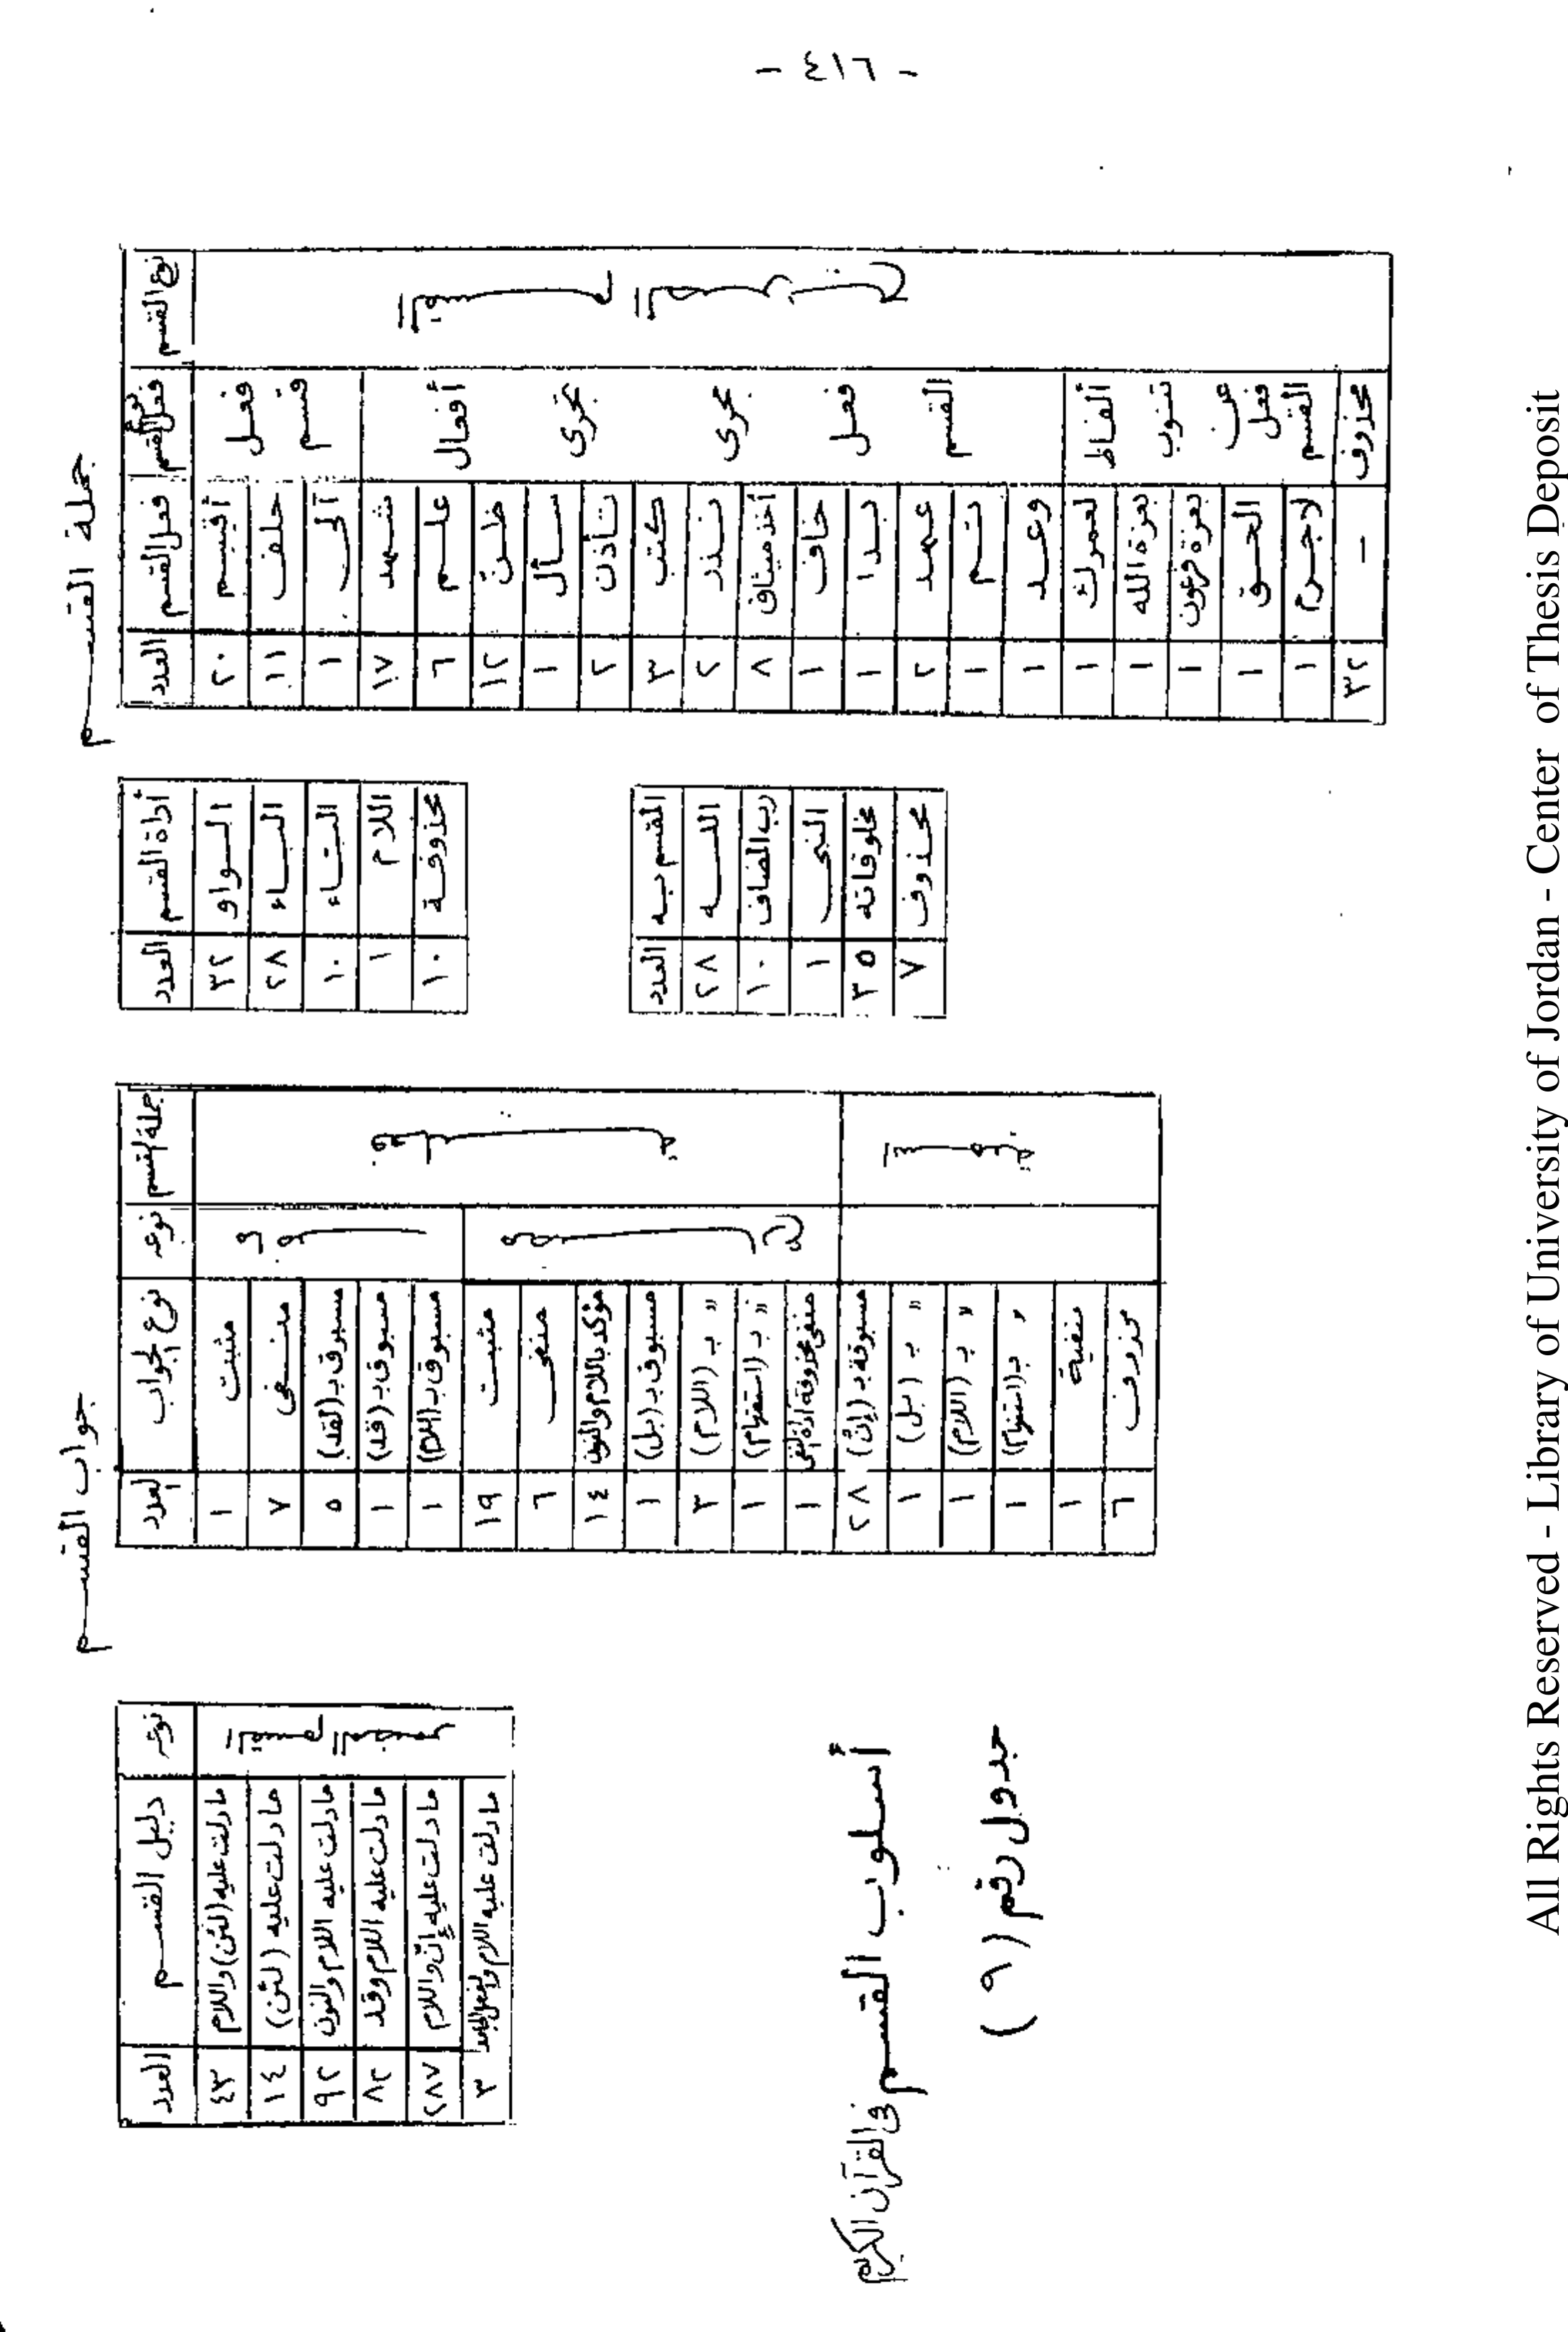 - ٤١٦ -
جملة القسم
نوع القسم | نوع فعل القسم | فعل القسم | العدد
فعل قسم | أقسم | ٢٠
حلف | ١١
آلى | ١
أفعال تجرى مجرى فعل القسم | شهد | ١٧
علم | ٦
ظن | ١٢
سأل | ١
تأذن | ٢
كتب | ٣
نذر | ٢
أخذ ميثاق | ٨
خاف | ١
بدا | ١
عهد | ٢
تم | ١
وعد | ١
ألفاظ تنوب عن فعل القسم | لعمرك | ١
بعزة الله | ١
بعزة فرعون | ١
الحق | ١
لاجرم | ١
محذوف | - | ٣٢
أداة القسم | العدد
الواو | ٣٢
الباء | ٢٨
التاء | ١٠
اللام | ١
محذوفة | ١٠
المقسم به | العدد
الله | ٢٨
رب المضاف | ١٠
النبي | ١
مخلوقاته | ٣٥
محذوف | ٧
جواب القسم
جملة القسم | نوعه | نوع الجواب | العدد
مثبت | ١
منفي | ٧
مسبوق بـ (لقد) | ٥
مسبوق بـ (قد) | ١
مسبوق بـ (اللام) | ١
مثبت | ١٩
منفي | ٦
مؤكد باللام والنون | ١٤
مسبوق بـ (بل) | ١
" بـ (اللام) | ٣
" بـ (استفهام) | ١
منفي محذوفة أداة النفي | ١
مسبوقة بـ (إنّ) | ٢٨
" بـ (بل) | ١
" بـ (اللام) | ١
" بـ (استفهام) | ١
منفية | ١
محذوف | ٦
نوعه | دليل القسم | العدد
ما دلت عليه (لئن) واللام | ٤٣
ما دلت عليه (لئن) | ١٤
ما دلت عليه اللام والنون | ٩٢
ما دلت عليه اللام وقد | ٨٢
ما دلت عليه إنّ واللام | ٢٨٧
ما دلت عليه اللام والفعل الجامد | ٣
أسلوب القسم في القرآن الكريم
جدول رقم (٩)
All Rights Reserved - Library of University of Jordan - Center of Thesis Deposit